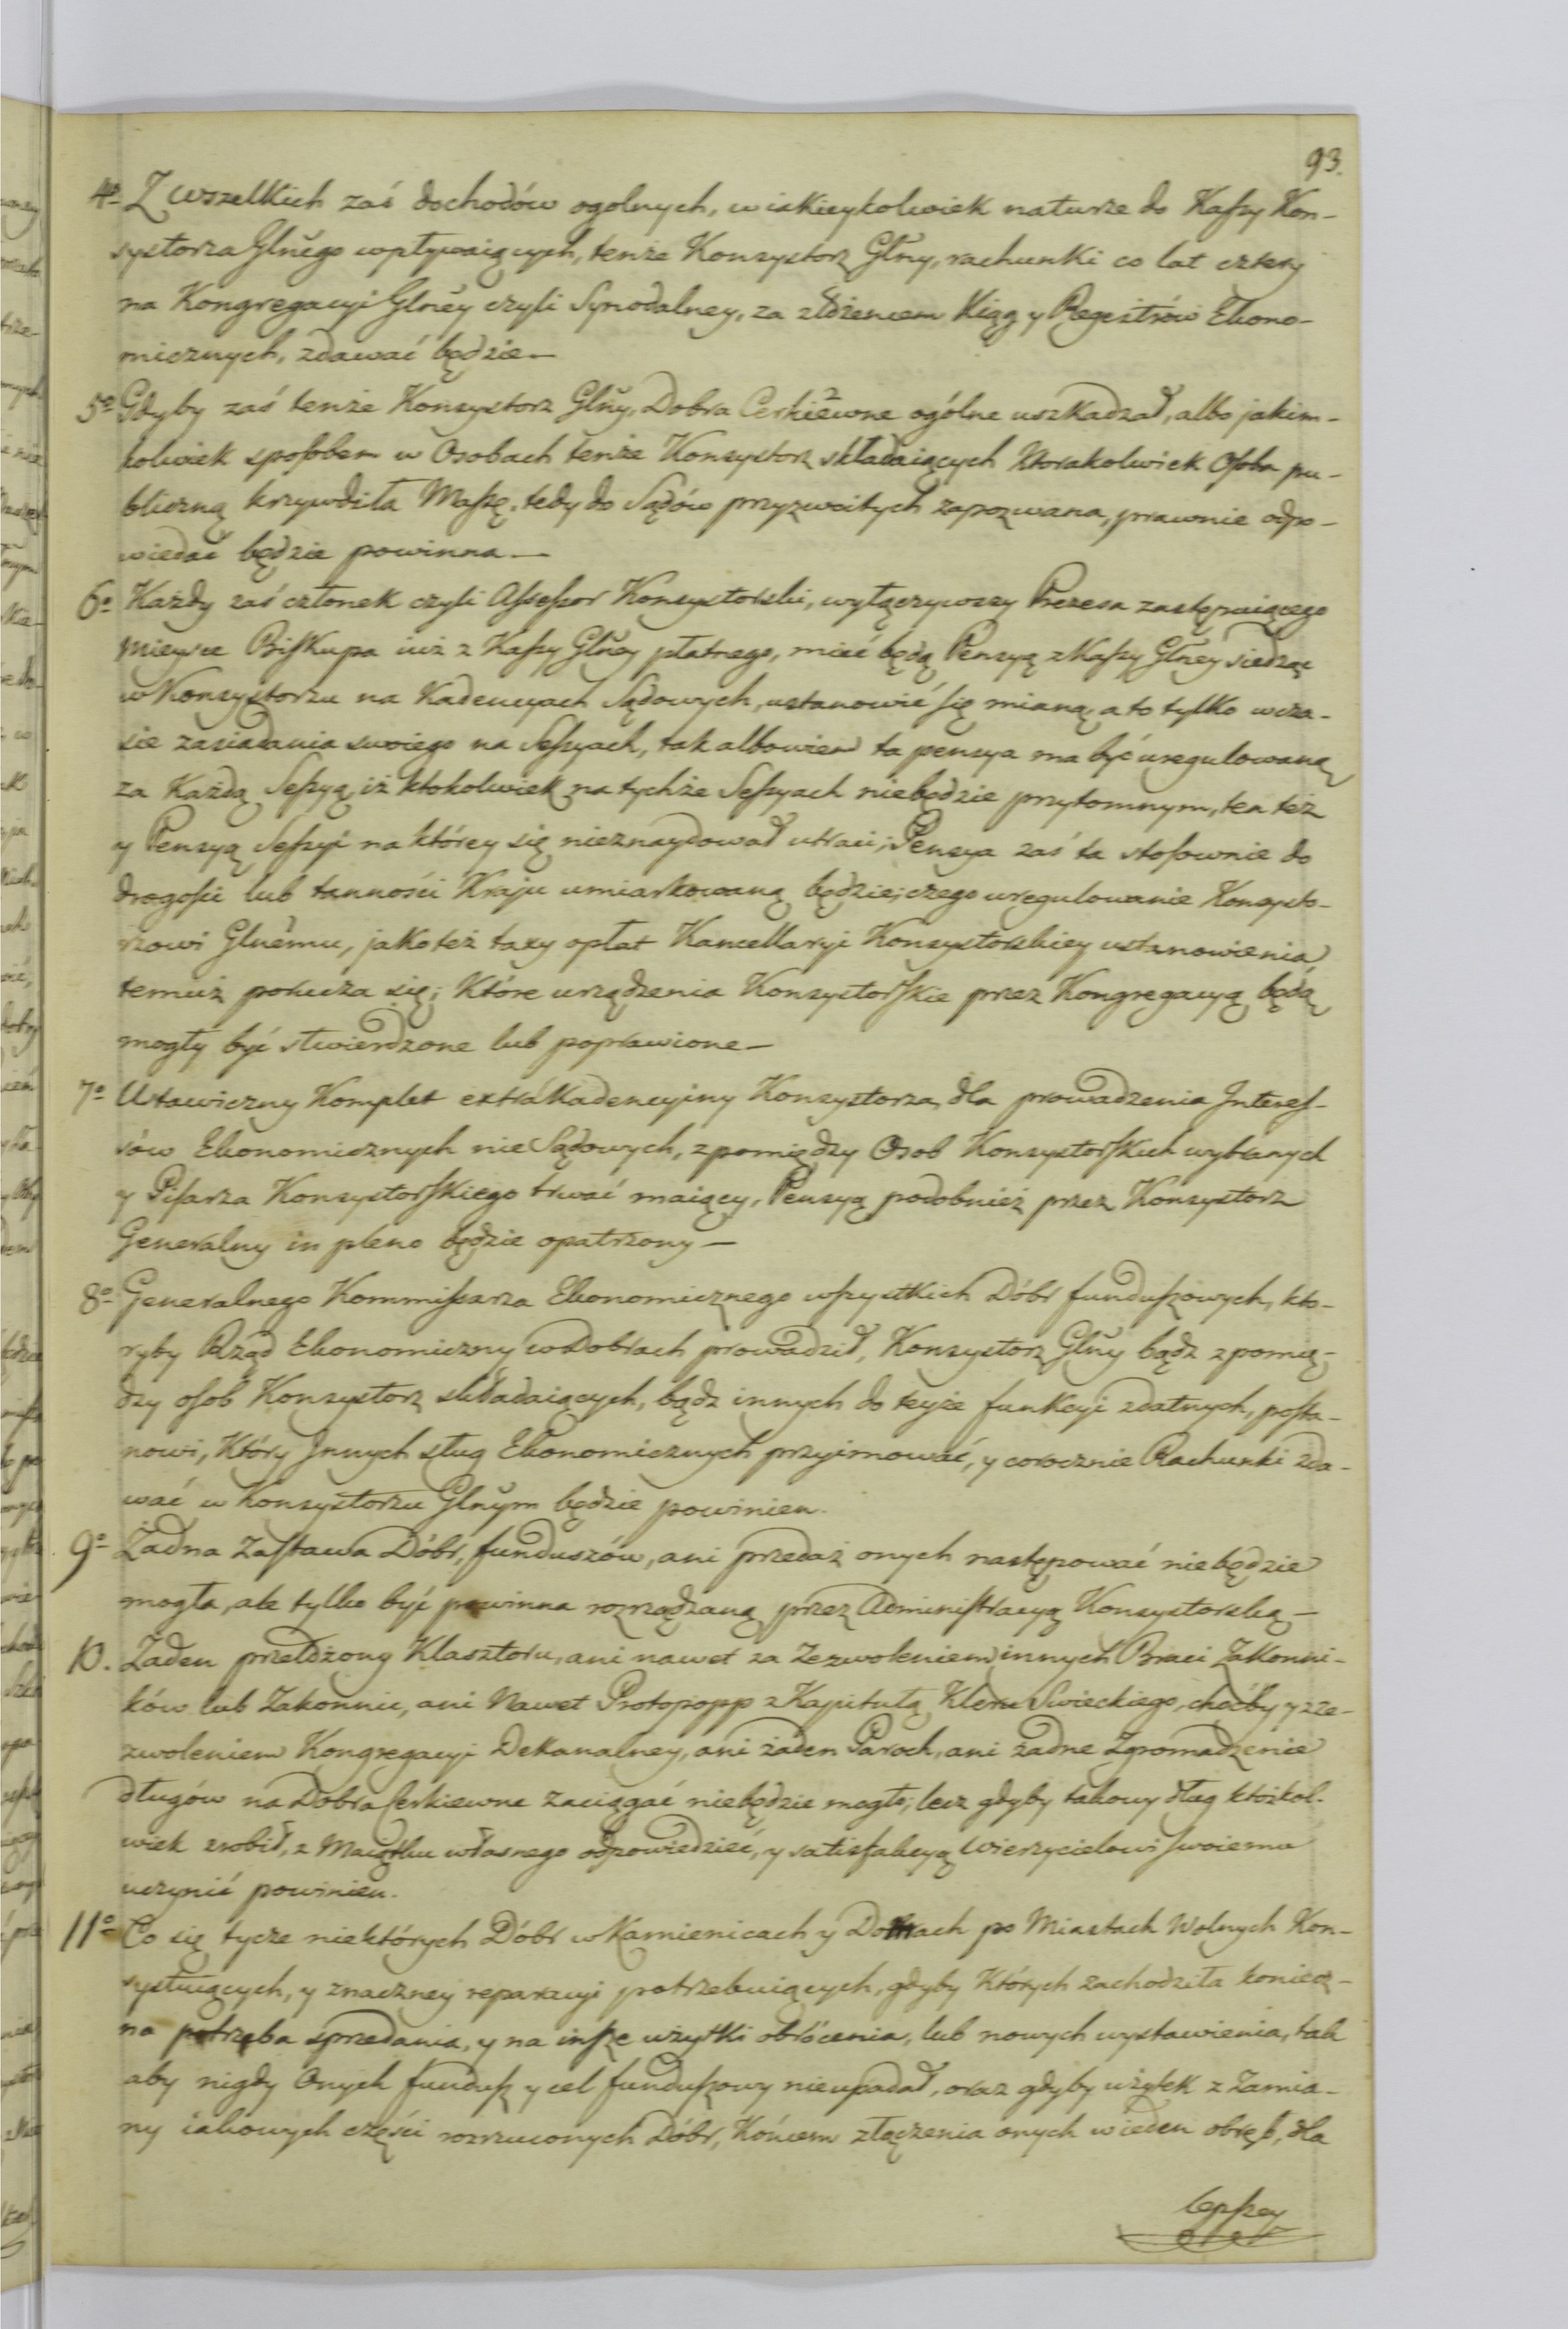 93.
4º Z wszelkich zaś dochodów ogolnych, w iakieykolwiek naturze do Kaſsy Kon-
systorza Glnego wpływaiących, tenże Konsystorz Głny, rachunki co lat cztery
na Kongregacyi Glney czyli Synodalney, za złożeniem Xiąg y Regestrów Ekono-
micznych, zdawać będzie—
5º Gdyby zaś tenże Konsystorz Głny, Dobra Cerkiewne ogólne uszkadzał, albo jakim-
kolwiek spoſobem w Osobach tenże Konsystorz składaiących Ktorakolwiek Oſoba pu-
bliczną krzywdiła Maſsę, tedy do Sądów przyzwoitych zapozwana, prawnie odpo-
wiedać będzie powinna—
6º Każdy zaś członek czyli Aſseſsor Konsystorski, wyłączywszy Prezesa zastępuiącego
Mieysce Biſkupa iuż z Kaſsy Głney płatnego, mieć będą Pensyą z Kaſsy Głney siedząc
w Konsystorzu na Kadencyach Sądowych, ustanowić ſię mianą, a to tylko w cza-
sie zasiadania swoiego na Seſsyach, tak albowiem ta pensya ma być uregulowaną
za Każdą Seſsyą, iż ktokolwiek na tychże Seſsyach niebędzie przytomnym, ten też
y Pensyą Seſsyi na którey się nieznaydował utraci; Pensya zaś ta stoſownie do
drogoſci lub tanności Kraju umiarkowaną będzie; czego uregulowanie Konsysto-
rzowi Glnemu, jakoteż taxy opłat Kancellaryi Konsystorskiey ustanowienia
temuż porucza się; Które urządzenia Konsystorſkie przez Kongregacyą będą
mogły być stwierdzone lub poprawione—
7º Ustawiczny Komplet extrakadencyiny Konsystorza, dla prowadzenia Intereſ-
sów Ekonomicznych nie Sądowych, z pomiędzy Osob Konsystorſkich wybranych
y Piſarza Konsystorſkiego trwać maiący, Pensyą podobnież przez Konsystorz
Generalny in pleno będzie opatrzony—
8º Generalnego Kommiſsarza Ekonomicznego wſzystkich Dóbr funduſzowych, kto-
ryby Rząd Ekonomiczny w Dobrach prowadził, Konsystorz Głny bądz z pomię-
dzy oſob Konsystorz składaiących, bądz innych do teyże funkcyi zdatnych, poſta-
nowi, Który Innych sług Ekonomicznych przyimować, y corocznie Rachunki zda-
wać w Konsystorzu Glnym będzie powinien.
9º Żadna Zaſtawa Dóbr, funduszów, ani przedaż onych następować niebędzie
mogła, ale tylko być powinna rozrządzaną przez Adminiſtracyą Konsystorską—
10. Żaden przełożony Klasztoru, ani nawet za Zezwoleniem innych Braci Zakonni-
ków lub Zakonnic, ani Nawet Protopopp z Kapitułą Kleru Swieckiego, choćby y z ze-
zwoleniem Kongregacyi Dekanalney, ani żaden Paroch, ani żadne Zgromadzenie
długów na Dobra Cerkiewne zaciągać niebędzie mogło; lecz gdyby takowy dług ktożkol-
wiek zrobił, z Maiątku własnego odpowiedzieć, y satisfakcyą Wierzycielowi ſwoiemu
uczynić powinien.
11º Co się tycze niektórych Dóbr w Kamienicach y Domach po Miastach Wolnych Kon-
systuiących, y znaczney reparacyi potrzebuiących, gdyby Których zachodziła koniecz-
na potrzeba sprzedania, y na inſze użytki obrócenia, lub nowych wystawienia, tak
aby nigdy Onych funduſz y cel funduſzowy nieupadał, oraz gdyby użytek z Zamia-
ny iakowych części rozrzuconych Dóbr, Końcem złączenia onych w ieden obręb, dla
lepſzey